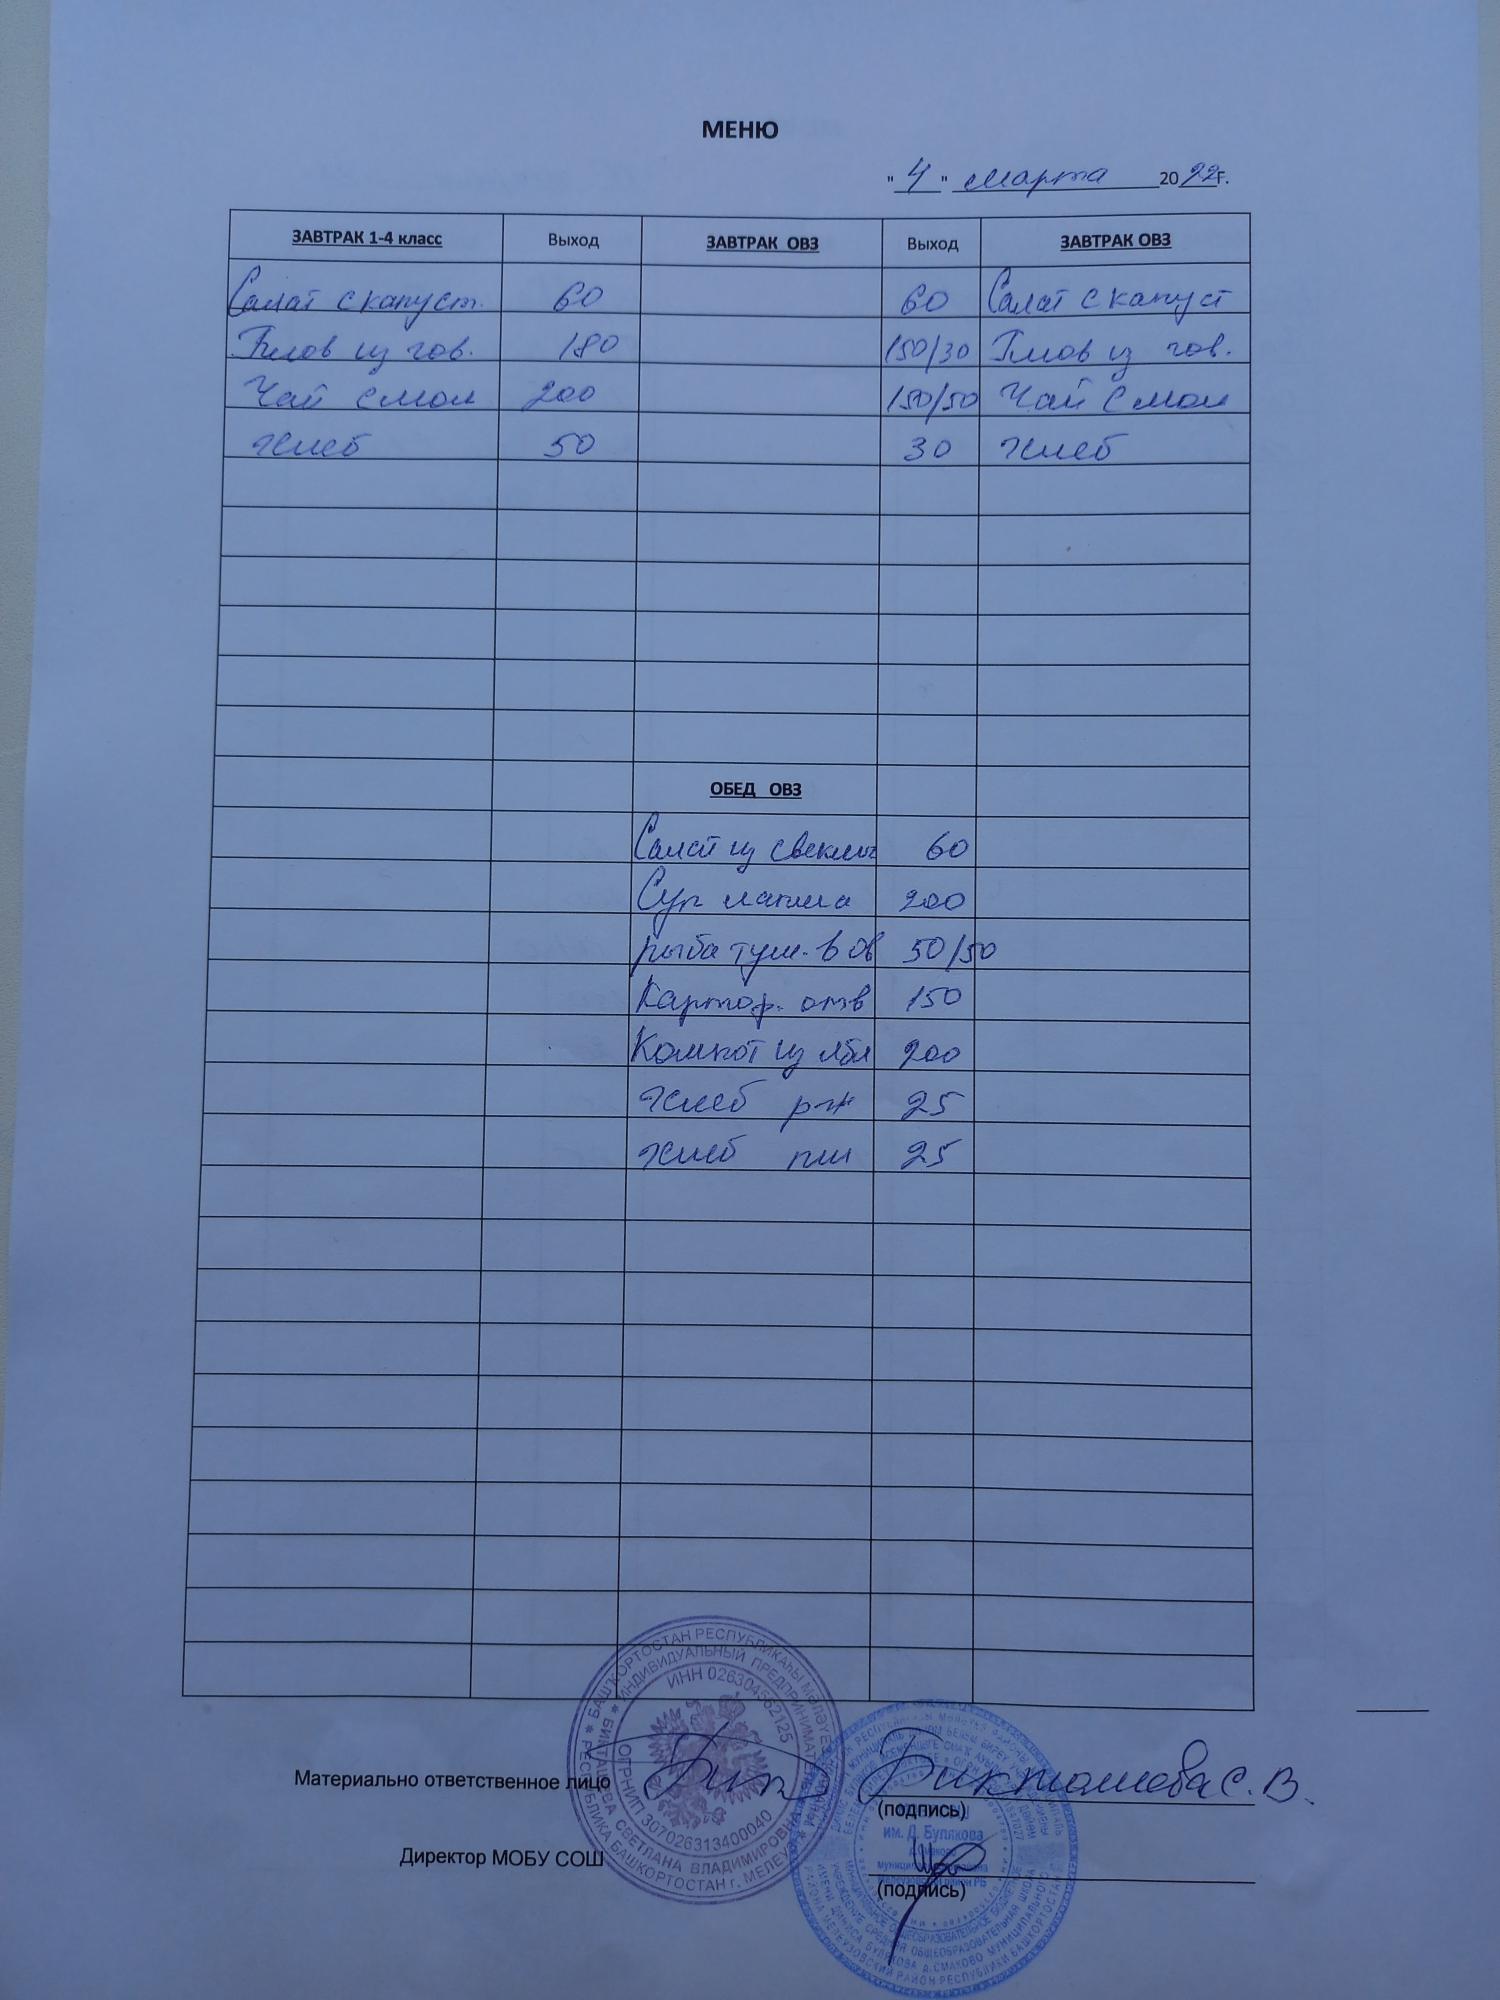 МЕНЮ
"4" марта 2022г.
ЗАВТРАК 1-4 класс Выход ЗАВТРАК ОВЗ Выход ЗАВТРАК ОВЗ
Салат с капуст. 60 60 Салат с капуст
Плов из гов. 180 150/30 Плов из гов.
Чай с мол 200 150/50 Чай с мол
Хлеб 50 30 Хлеб
ОБЕД ОВЗ
Салат из свеклы 60
Суп лапша 200
рыба туш. в ов 50/50
Картоф. отв 150
Компот из ябл 200
Хлеб рж 25
Хлеб пш 25
Материально ответственное лицо Бикташева С. В.
(подпись)
Директор МОБУ СОШ
(подпись)
БАШҠОРТОСТАН РЕСПУБЛИКАҺЫ
ИНДИВИДУАЛЬНЫЙ ПРЕДПРИНИМАТЕЛЬ
ИНН 026304552125
БИКТАШЕВА СВЕТЛАНА ВЛАДИМИРОВНА
ОГРНИП 307026313400040
РЕСПУБЛИКА БАШКОРТОСТАН г. МЕЛЕУЗ
им. Д. Булякова